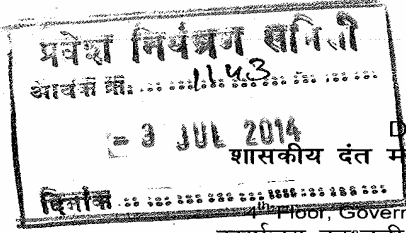 प्रवेश नियंत्रण समिती
आवक क्र. 1143
- 3 JUL 2014
शासकीय दंत म
दिनांक
4th Floor, Govern